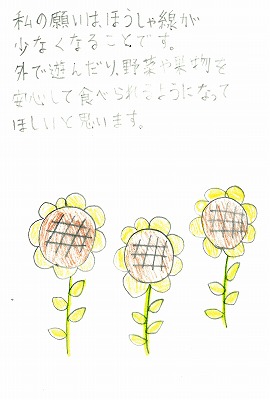 私の願いは、ほうしゃ線が
少なくなることです。
外で遊んだり、野菜や果物を
安心して食べられるようになって
ほしいと思います。